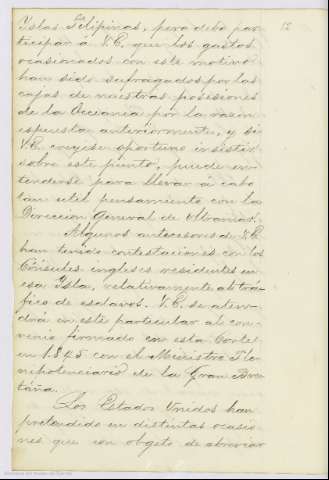 12
Yslas Filipinas, pero debo par-
ticipar á V.E. que los gastos
ocasionados con este motivo
han sido sufragados por las
cajas de nuestras posesiones
de la Occeania por la razon
espuesta anteriormente, y si
V.E. creyese oportuno insistir
sobre este punto, puede en-
tenderse para llevar á cabo
tan util pensamiento con la
Direccion General de Ultramar.
Algunos antecesores de V.E.
han tenido contestaciones con los
Cónsules ingleses residentes en
esa Ysla, relativamente al trá-
fico de esclavos. V.E. se aten-
drá en este particular al con-
venio firmado con esta Corte
en 1845 con el Ministro Ple-
nipotenciario de la Gran Bre-
taña.
Los Estados Unidos han
pretendido en distintas ocasio-
nes que con objeto de abreviar